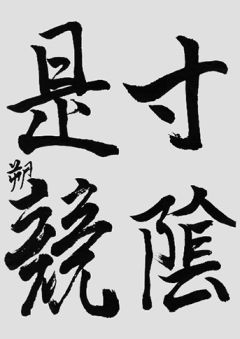 寸陰
是競
朔